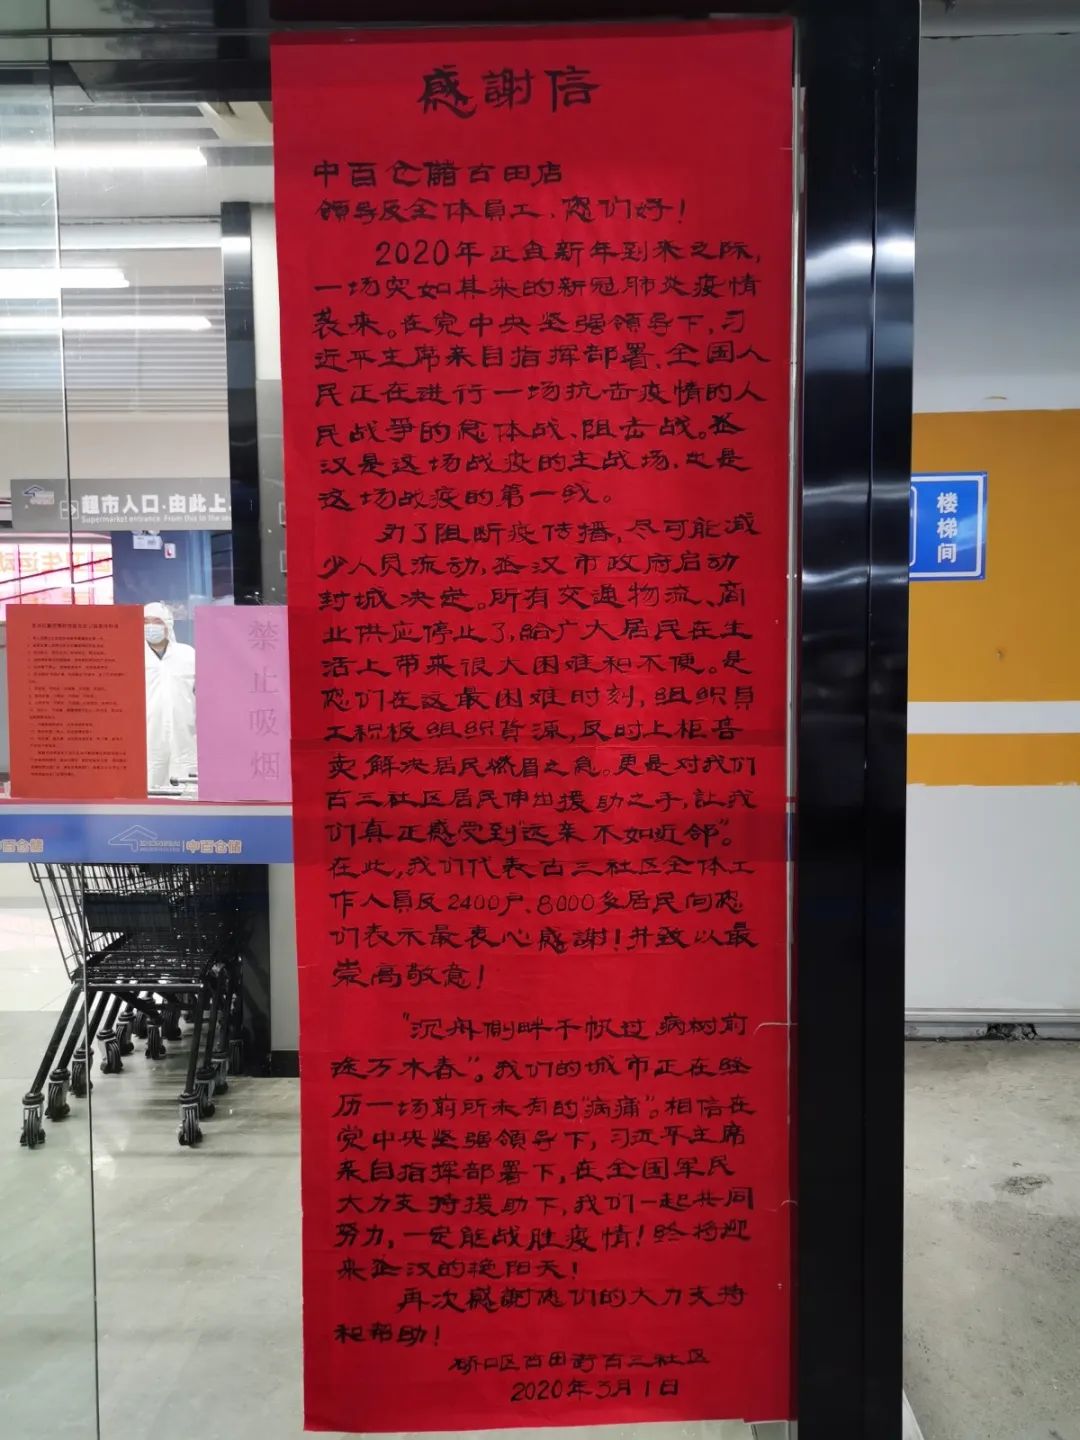 感謝信
中百仓儲古田店
領导及全体員工、您们好！
2020年正值新年到来之际，
一场突如其来的新冠肺炎疫情
袭来。在党中央坚强領导下，习
近平主席亲自指挥部署、全国人
民正在进行一场抗击疫情的人
民战争的总体战、阻击战。武
汉是这场战疫的主战场，也是
这场战疫的第一线。
为了阻断疫情传播，尽可能减
少人员流动，武汉市政府启动
封城决定。所有交通物流、商
业供应停止了，给广大居民在生
活上带来很大困难和不便。是
您们在这最困难时刻，组织員
工积极组织货源，及时上柜售
卖，解决居民燃眉之急。更是对我们
古三社区居民伸出援助之手，让我
们真正感受到“远亲不如近邻”。
在此，我们代表古三社区全体工
作人員及2400户、8000多居民向您
们表示最衷心感謝！并致以最
崇高敬意！
“沉舟側畔千帆过 病树前
途万木春”。我们的城市正在经
历一场前所未有的“病痛”。相信在
党中央坚强領导下，习近平主席
亲自指挥部署下，在全国军民
大力支持援助下，我们一起共同
努力，一定能战胜疫情！终将迎
来武汉的艳阳天！
再次感謝您们的大力支持
和帮助！
硚口区古田街古三社区
2020年3月1日
超市入口·由此上
Supermarket entrance From this to the
禁止吸烟
中百仓储
ZHONGBAI 中百仓储
楼梯间